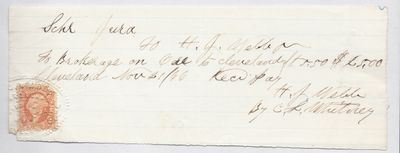 Schr Jura
To H. J. Webb
To Brokerage on Oats to Cleveland $5.00
Cleveland Nov Rec'd Pay
H. J. Webb
By C. L. Whitney